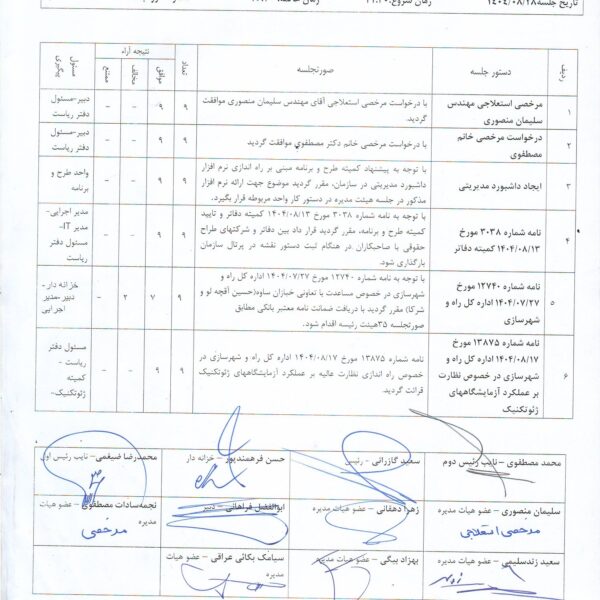 تاریخ جلسه ۱۴۰۴/۰۸/۲۸
ردیف
دستور جلسه
صورتجلسه
تعداد
نتیجه آراء
موافق
مخالف
ممتنع
مسئول پیگیری
۱
مرخصی استعلاجی مهندس
سلیمان منصوری
با درخواست مرخصی استعلاجی آقای مهندس سلیمان منصوری موافقت
گردید.
۹
۹
–
–
دبیر-مسئول
دفتر ریاست
۲
درخواست مرخصی خانم
مصطفوی
با درخواست مرخصی خانم دکتر مصطفوی موافقت گردید
۹
۹
–
–
دبیر-مسئول
دفتر ریاست
۳
ایجاد داشبورد مدیریتی
با توجه به پیشنهاد کمیته طرح و برنامه مبنی بر راه اندازی نرم افزار
داشبورد مدیریتی در سازمان، مقرر گردید موضوع جهت ارائه نرم افزار
مذکور در جلسه هیئت مدیره در دستور کار واحد مربوطه قرار بگیرد.
۹
۹
–
–
واحد طرح و
برنامه
۴
نامه شماره ۳۰۳۸ مورخ
۱۴۰۴/۰۸/۱۳ کمیته دفاتر
با توجه به نامه شماره ۳۰۳۸ مورخ ۱۴۰۴/۰۸/۱۳ کمیته دفاتر و تایید
کمیته طرح و برنامه، مقرر گردید قرار داد بین دفاتر و شرکتهای طراح
حقوقی با صاحبکاران در هنگام ثبت دستور نقشه در پرتال سازمان
بارگذاری شود.
۹
۹
–
–
مدیر اجرایی-
مدیر IT-
مسئول دفتر
ریاست
۵
نامه شماره ۱۲۷۴۰ مورخ
۱۴۰۴/۰۷/۲۷ اداره کل راه و
شهرسازی
با توجه به نامه شماره ۱۲۷۴۰ مورخ ۱۴۰۴/۰۷/۲۷ اداره کل راه و
شهرسازی در خصوص مساعدت با تعاونی خبازان ساوه(حسین آقچه لو و
شرکا) مقرر گردید با دریافت ضمانت نامه معتبر بانکی مطابق
صورتجلسه ۳۵هیئت رئیسه اقدام شود.
۹
۷
۲
–
خزانه دار-
دبیر-مدیر
اجرایی
۶
نامه شماره ۱۳۸۷۵ مورخ
۱۴۰۴/۰۸/۱۷ اداره کل راه و
شهرسازی در خصوص نظارت
بر عملکرد آزمایشگاههای
ژئوتکنیک
نامه شماره ۱۳۸۷۵ مورخ ۱۴۰۴/۰۸/۱۷ اداره کل راه و شهرسازی در
خصوص راه اندازی نظارت عالیه بر عملکرد آزمایشگاههای ژئوتکنیک
قرائت گردید.
۹
۹
–
–
مسئول دفتر
ریاست -
کمیته
ژئوتکنیک-
محمد مصطفوی – نایب رئیس دوم
سعید گازرانی - رئیس
حسن فرهمندپور – خزانه دار
محمدرضا ضیغمی – نایب رئیس اول
سلیمان منصوری – عضو هیات مدیره
مرخصی استعلاجی
زهرا دهقانی – عضو هیات مدیره
ابوالفضل فراهانی – دبیر
نجمه‌سادات مصطفوی – عضو هیات
مدیره
مرخصی
سعید زندسلیمی – عضو هیات مدیره
بهزاد بیگی – عضو هیات مدیره
سیامک بکائی عراقی – عضو هیات
مدیره